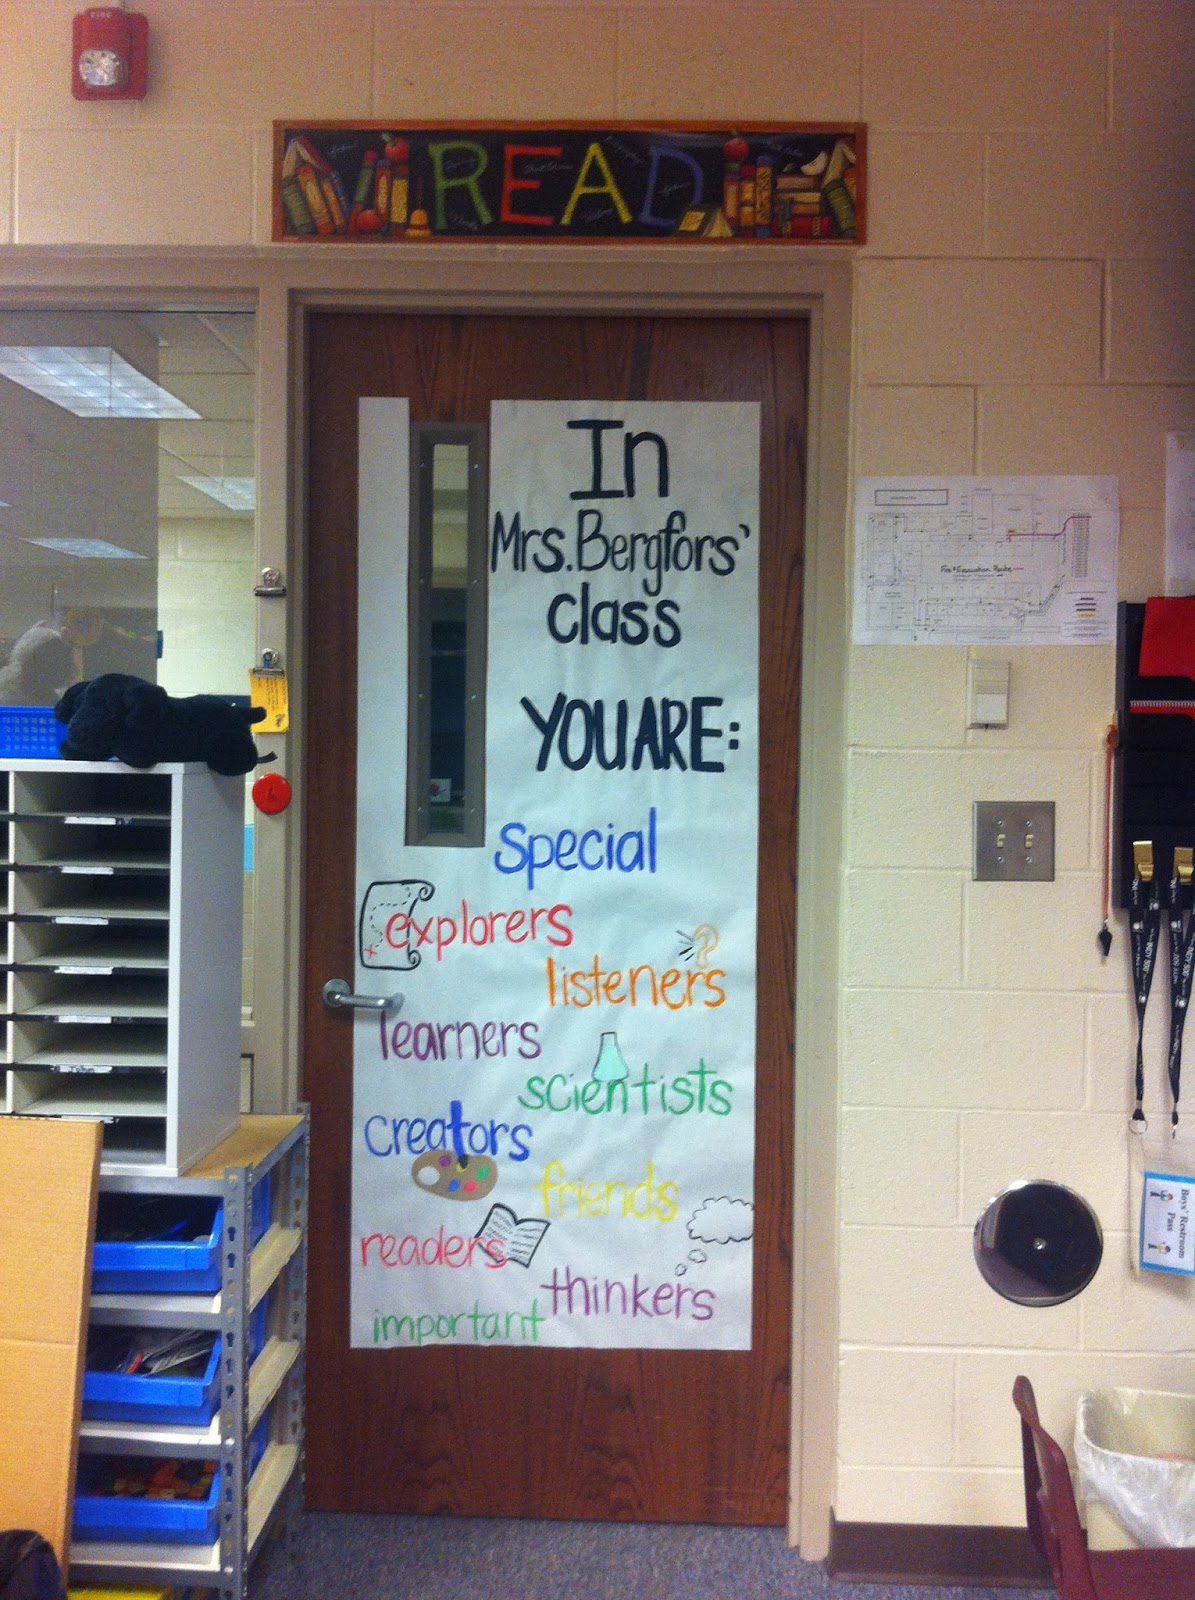 FIRE
READ
In
Mrs. Bergfors'
class
YOU ARE:
special
explorers
listeners
learners
scientists
creators
friends
readers
thinkers
important
Fire Evacuation Route
INDY 500
INDY 500
Boys' Restroom
Pass
John